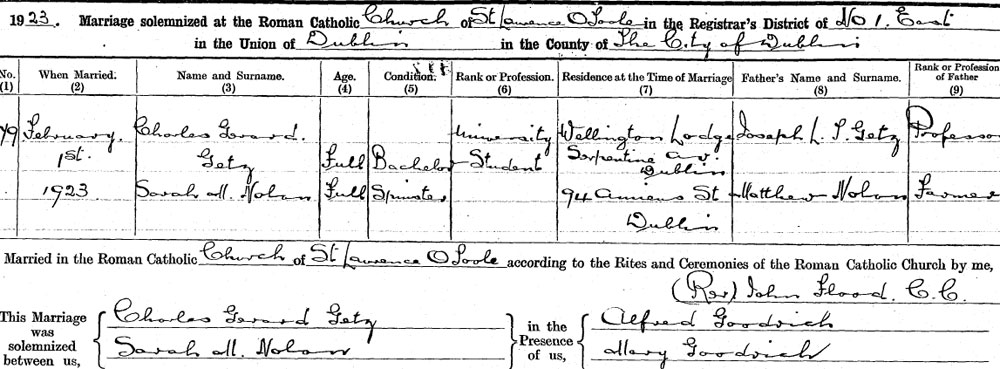 1923. Marriage solemnized at the Roman Catholic Church of St Laurence O'Toole in the Registrar's District of No 1. East
in the Union of Dublin in the County of The City of Dublin
No. (1) When Married. (2) Name and Surname. (3) Age. (4) Condition. (5) Rank or Profession. (6) Residence at the Time of Marriage (7) Father's Name and Surname. (8) Rank or Profession of Father (9)
79 February 1st. 1923 Charles Gerard Getz Full Bachelor University Student Wellington Lodge Serpentine Av. Dublin Joseph L. T. Getz Professor
Sarah M. Nolan Full Spinster 94 Amiens St Dublin Matthew Nolan Farmer
Married in the Roman Catholic Church of St Laurence O'Toole according to the Rites and Ceremonies of the Roman Catholic Church by me,
(Rev) John Flood. C.C.
This Marriage was solemnized between us, Charles Gerard Getz
Sarah M. Nolan
in the Presence of us, Alfred Goodrich
Mary Goodrich